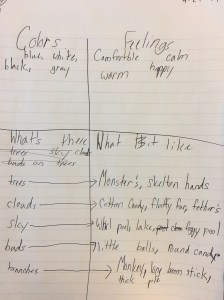 Colors
blue, white,
black, gray
Feelings
Comfortable calm
warm happy
What's there
trees sky clouds
buds on trees
What is it like
trees → Monster's, skelton hands
clouds → Cotton Candy, fluffy fur, feather's
sky → pool, lake, foggy pool
buds → little balls, round candy
branches → Monkey, long brown sticky,
thick